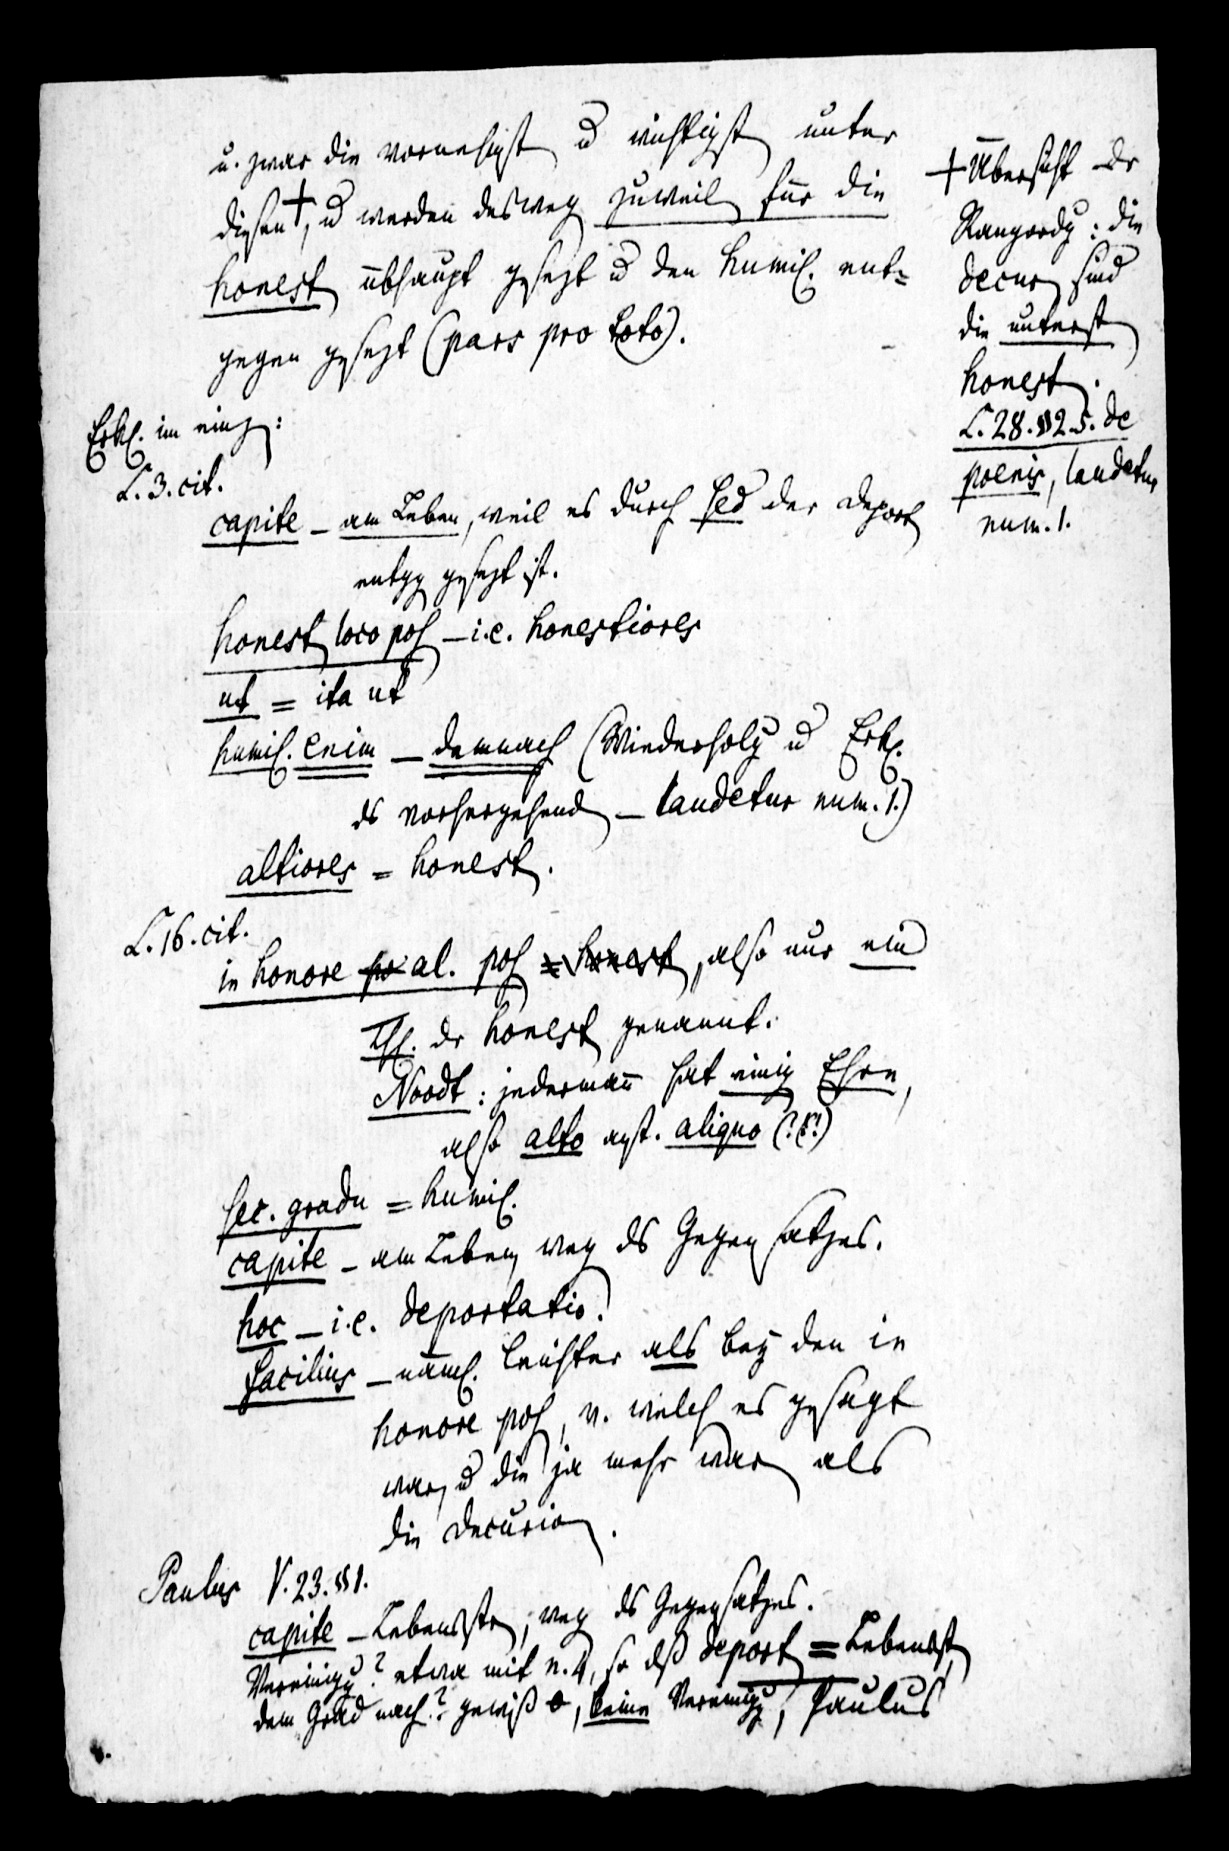 u. zwar die vornehmst u wichtigst unter
diesen+, u werden deswg zuweil für die
honest übhaupt gesezt u den humil. ent=
gegen gesezt (pars pro toto).
+ Übersicht dr
Rangordg: die
decur sind
die unterst
honest.
L. 28. §§ 2.5. de
poenis, laudetur
num. 1.
Erkl. im einz:
L. 3. cit.
capite – am Leben, weil es durch sed der deport
entgg gesezt ist.
honest loco pos – i.e. honestiores
ut = ita ut
humil. enim – demnach (Wiederholg u Erkl.
ds vorhergehend – laudetur num. 1.)
altiores = honest.
L. 16. cit.
in honore al. pos = honest, also nur ein
Thl. dr honest genannt.
Noodt: jedermann hat einig Ehre,
also alto anst. aliquo (?!)
sec. gradu = humil.
capite – am Leben, weg ds Gegensatzes.
hoc – i.e. deportatio.
facilius – näml. leichter als bey den in
honore pos, v. welch es gesagt
war, u die ja mehr war als
die Decurion.
Paulus V. 23. §§ 1.
capite – Lebensstr, weg ds Gegensatzes.
Vereinigg? etwa mit n. 4, so dß deport = Lebensst
dem Grad nach? gewiß, keine Vereinigg, Paulus